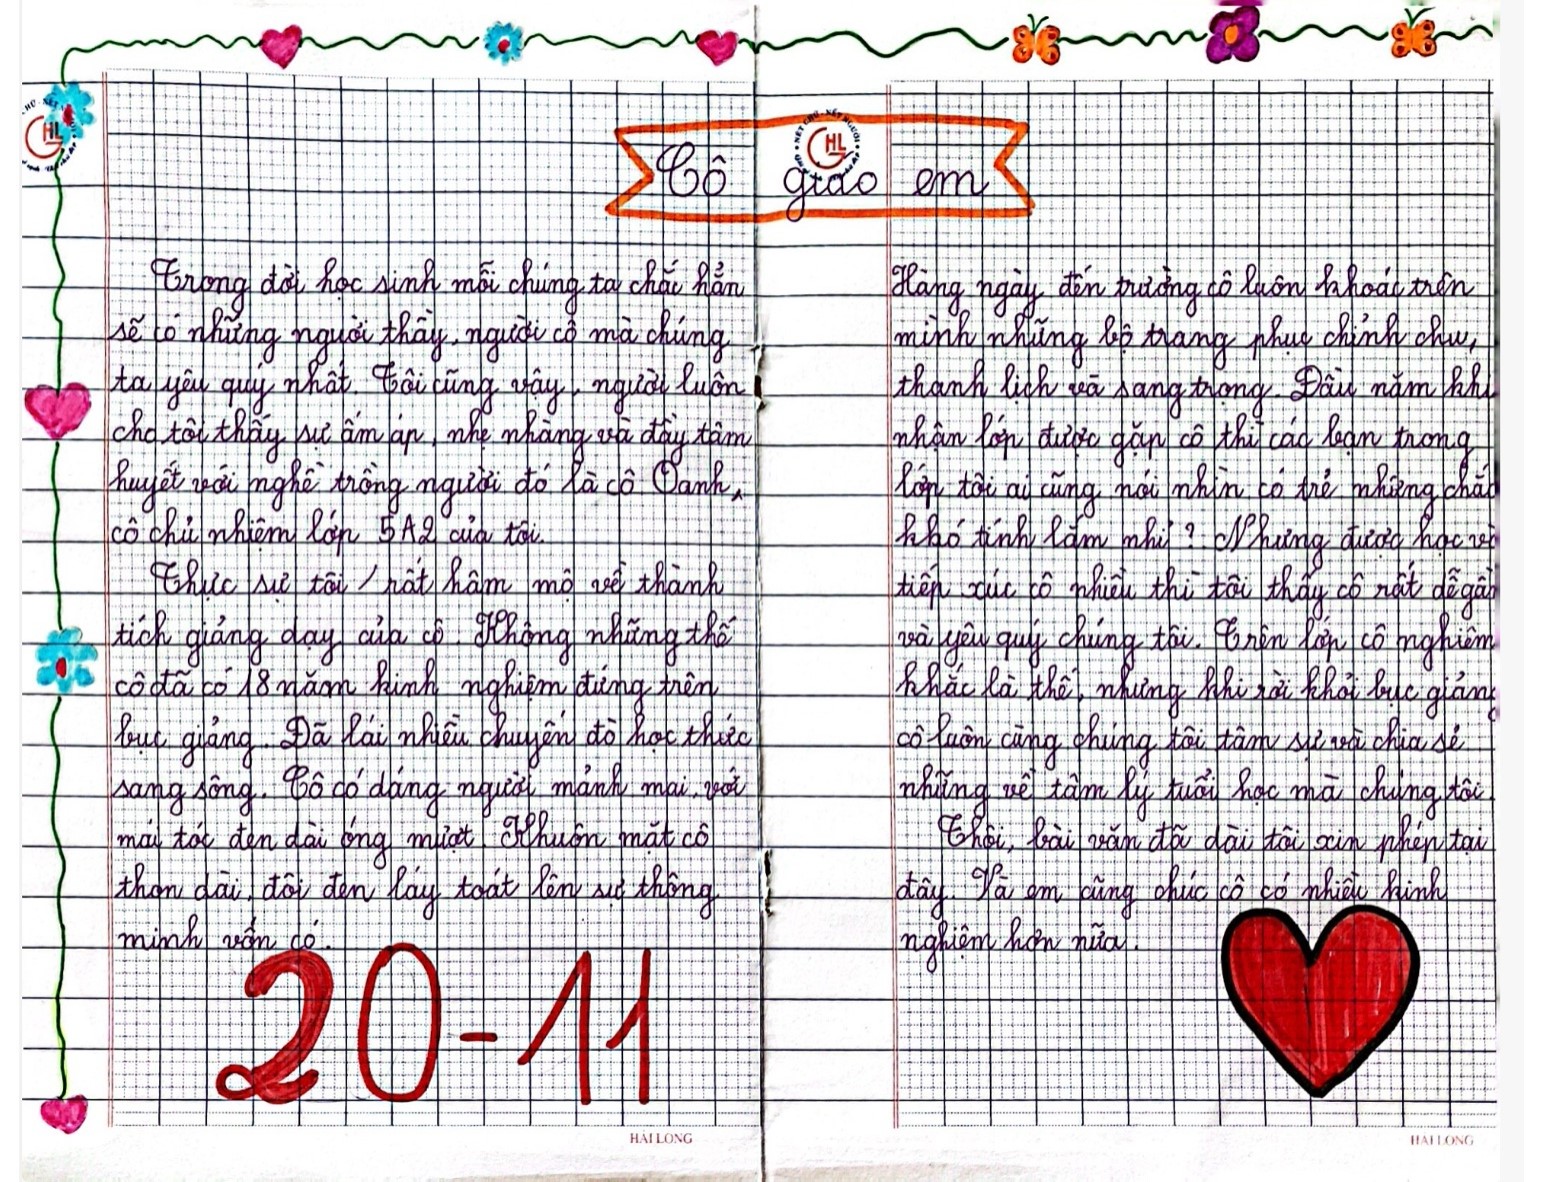 Cô giáo em
Trong đời học sinh mỗi chúng ta chắc hẳn
sẽ có những người thầy, người cô mà chúng
ta yêu quý nhất. Tôi cũng vậy, người luôn
cho tôi thấy sự ấm áp, nhẹ nhàng và đầy tâm
huyết với nghề trồng người đó là cô Oanh,
cô chủ nhiệm lớp 5A2 của tôi.
Thực sự tôi / rất hâm mộ về thành
tích giảng dạy của cô. Không những thế
cô đã có 18 năm kinh nghiệm đứng trên
bục giảng. Đã lái nhiều chuyến đò học thức
sang sông. Cô có dáng người mảnh mai, với
mái tóc đen dài óng mượt. Khuôn mặt cô
thon dài, đôi đen láy toát lên sự thông
minh vốn có.
20-11
HẢI LONG
Hàng ngày đến trường cô luôn khoác trên
mình những bộ trang phục chỉnh chu,
thanh lịch và sang trọng. Đầu năm khi
nhận lớp được gặp cô thì các bạn trong
lớp tôi ai cũng nói nhìn cô trẻ nhưng chắc
khó tính lắm nhỉ? Nhưng được học và
tiếp xúc cô nhiều thì tôi thấy cô rất dễ gần
và yêu quý chúng tôi. Trên lớp cô nghiêm
khắc là thế, nhưng khi rời khỏi bục giảng
cô luôn cùng chúng tôi tâm sự và chia sẻ
những về tâm lý tuổi học mà chúng tôi
Thôi, bài văn đã dài tôi xin phép tại
đây. Và em cũng chúc cô có nhiều kinh
nghiệm hơn nữa.
HẢI LONG